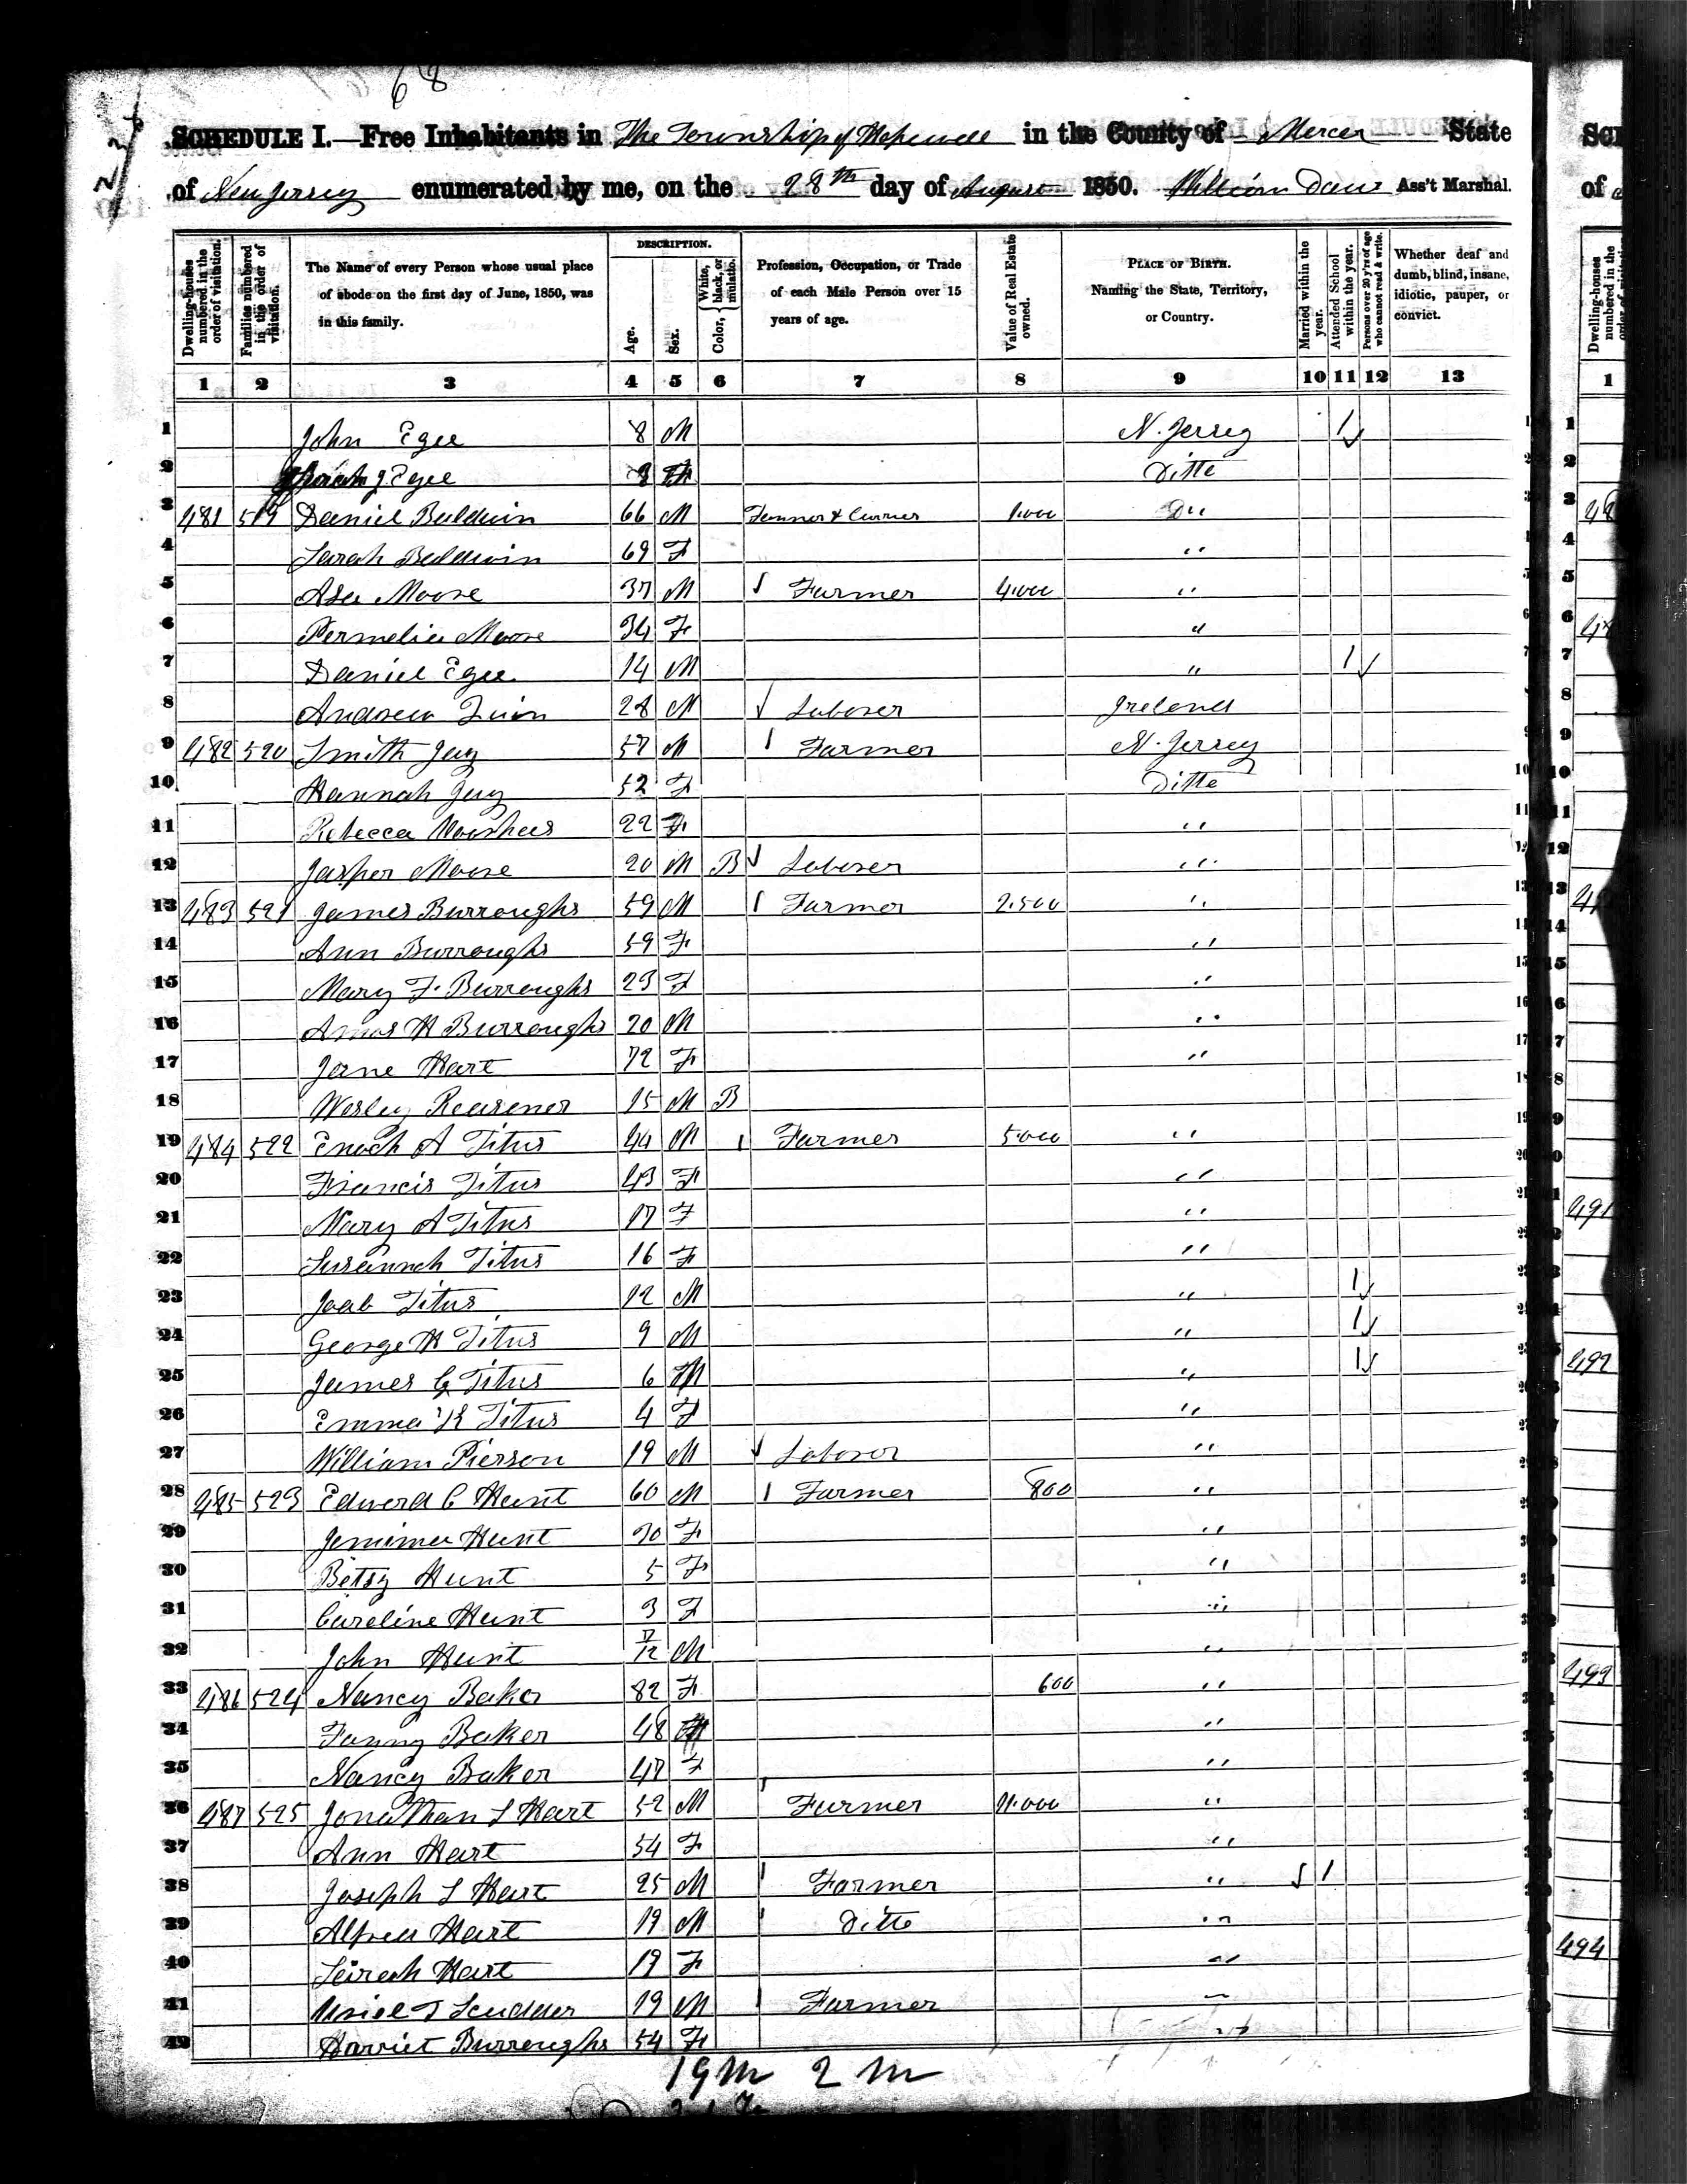 68
SCHEDULE I.—Free Inhabitants in The Township of Hopewell in the County of Mercer State
of New Jersey enumerated by me, on the 28th day of August 1850. William Ass't Marshal.
Dwelling-houses numbered in the order of visitation.
Families numbered in the order of visitation.
The Name of every Person whose usual place of abode on the first day of June, 1850, was in this family.
DESCRIPTION.
Age.
Sex.
Color, { White, black, or mulatto.
Profession, Occupation, or Trade of each Male Person over 15 years of age.
Value of Real Estate owned.
PLACE OF BIRTH. Naming the State, Territory, or Country.
Married within the year.
Attended School within the year.
Persons over 20 y'rs of age who cannot read & write.
Whether deaf and dumb, blind, insane, idiotic, pauper, or convict.
1 2 3 4 5 6 7 8 9 10 11 12 13
1 John Egee 8 M N. Jersey 1
2 J Egee F Ditto
3 481 519 Daniel Baldwin 66 M Tanner & Currier 1.000 Do
4 Sarah Baldwin 69 F "
5 Asa Moore 37 M Farmer 4.000 "
6 Permelia Moore 34 F "
7 Daniel Egee 14 M " 1
8 Andrew Quin 28 M Laborer Ireland
9 482 520 Smith Jay 57 M Farmer N. Jersey
10 Hannah Jay 52 F Ditto
11 Rebecca Voorhees 22 F "
12 Jasper Moore 20 M B Laborer "
13 483 521 James Burroughs 59 M Farmer 2.500 "
14 Ann Burroughs 59 F "
15 Mary F. Burroughs 23 F "
16 Amos H Burroughs 20 M "
17 Jane Hart 72 F "
18 Wesley 15 M B
19 484 522 Enoch A Titus 44 M Farmer 5.000 "
20 Francis Titus 43 F "
21 Mary A Titus 17 F "
22 Susannah Titus 16 F "
23 Joab Titus 12 M " 1
24 George H Titus 9 M " 1
25 James G Titus 6 M " 1
26 Emma K Titus 4 F "
27 William Pierson 19 M Laborer "
28 485 523 Edward C Hunt 60 M Farmer 800 "
29 Jemima Hunt 30 F "
30 Betsy Hunt 5 F "
31 Caroline Hunt 3 F "
32 John Hunt 7/12 M "
33 486 524 Nancy Baker 82 F 600 "
34 Fanny Baker 48 F "
35 Nancy Baker 47 F "
36 487 525 Jonathan S Hart 52 M Farmer 11.000 "
37 Ann Hart 54 F "
38 Joseph S Hart 25 M Farmer " 1
39 Alfred Hart 19 M Ditto "
40 Sarah Hart 19 F "
41 Scudder 19 M Farmer "
42 Harriet Burroughs 54 F "
19 M 2 M
491
492
493
494